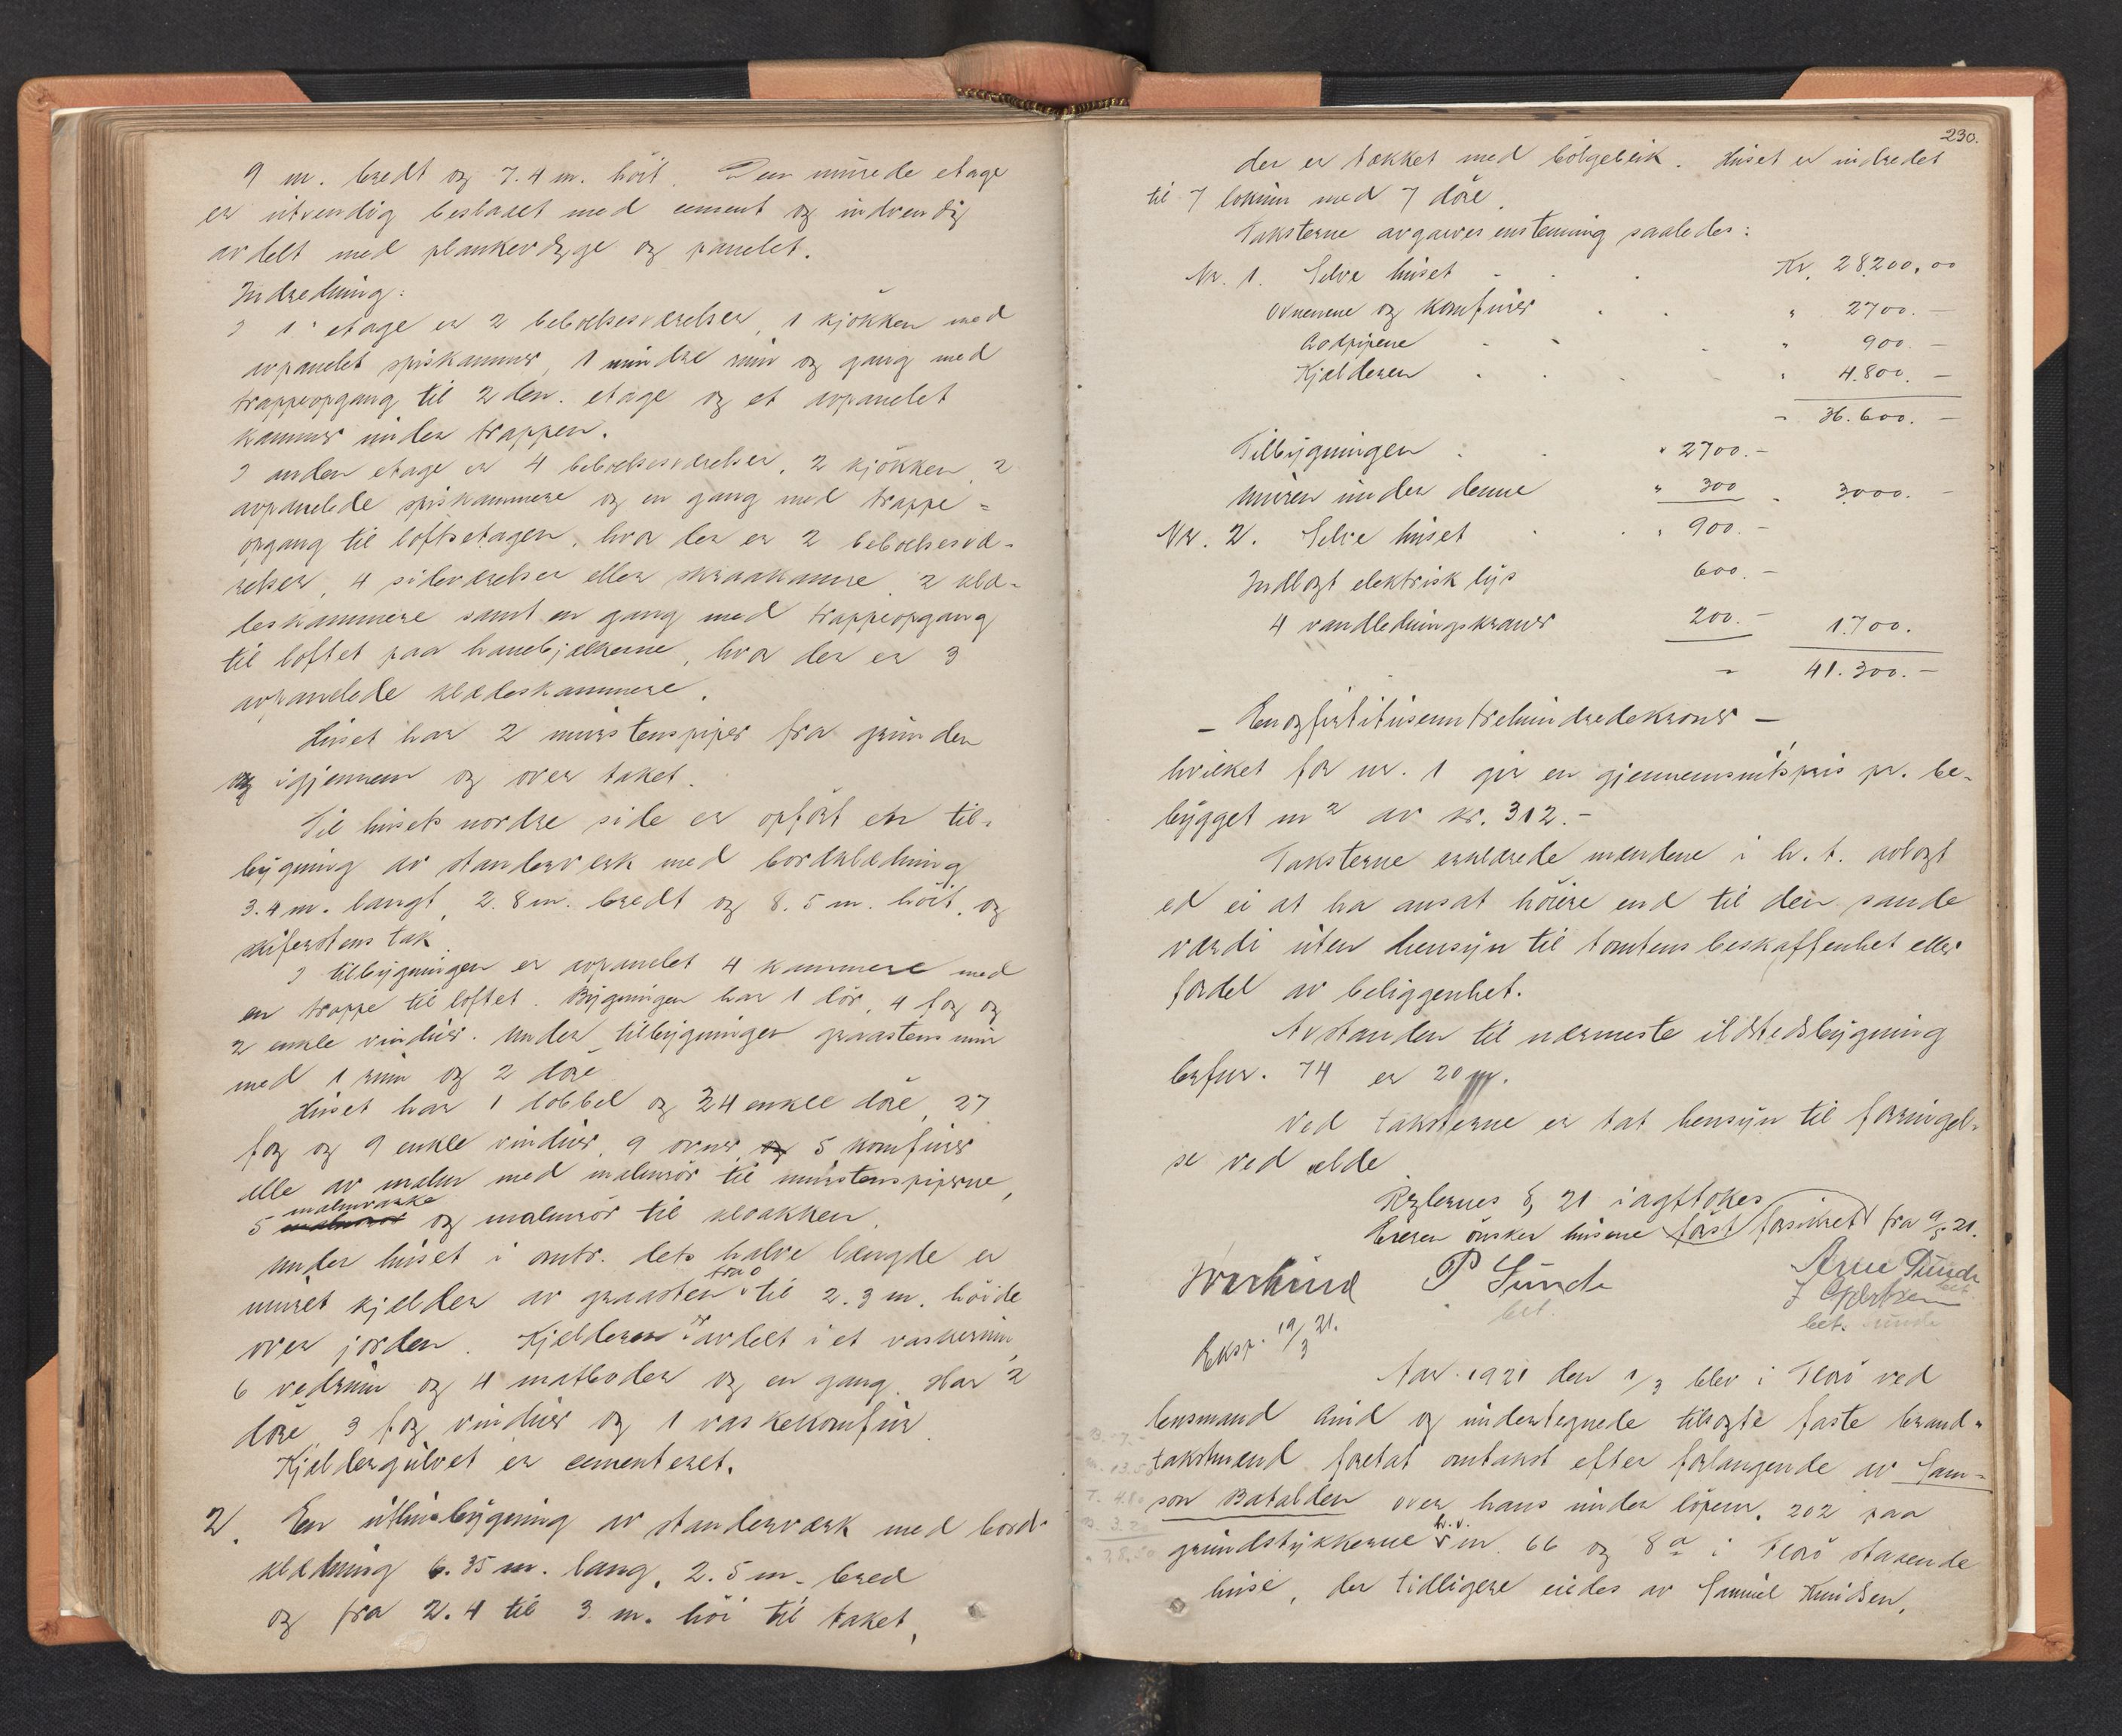 9 m. bredt og 7.4 m. höit. Den murede etage
er utvendig beslaaet med cement og indvendig
avdelt med plankevægge og panelet.
Indredning:
I 1' etage er 2 beboelsesværelser, 1 kjökken med
avpanelet spiskammer, 1 mindre rum og gang med
trappeopgang til 2den. etage og et avpanelet
kammer under trappen.
I anden etage er 4 beboelsesværelser, 2 kjökken, 2
avpanelede spiskammere og en gang med trappe=
opgang til loftsetagen, hvor der er 2 beboelsesvæ-
relser, 4 sideværelser eller skraakamre, 2 klæ-
deskammere samt en gang med trappeopgang
til loftet paa hanebjælkerne, hvor der er 3
avpanelede klædeskammere.
Huset har 2 murstenspiper fra grunden
og igjennem og over taket.
Til husets nordre side er opfört en til-
bygning av standerverk med bordklædning
3.4 m. langt, 2.8 m. bredt og 8.5 m. höit, og
skiferstens tak.
I tilbygningen er avpanelet 4 kammere med
en trappe til loftet. Bygningen har 1 dör, 4 fag og
2 enkle vinduer. Under tilbygningen graastens mur
med 1 rum og 2 döre
Huset har 1 dobbel og 24 enkle döre, 27
fag og 9 enkle vinduer, 9 ovner og 5 komfurer
alle av malm med malmrör til murstenspiperne,
malmvaske
5 malmrör og malmrör til kloakken.
Under huset i omtr. dets halve længde er
fra 0
muret kjelder av graasten til 2.3 m. höide
er
over jorden. Kjelderen avdelt i et vaskerum,
6 vedrum og 4 matboder og en gang. Har 2
döre, 3 fag vinduer og 1 vaskekomfur.
Kjældergulvet er cementeret.
2. En uthusbygning av standerværk med bord-
klædning 6.35 m. lang, 2.5 m. bred
og fra 2.4 til 3 m. höi til taket,
230.
der er tækket med bölgeblik. Huset er indredet
til 7 lokum med 7 döre.
Taksterne avgaves enstemmig saaledes:
Nr. 1. Selve huset Kr. 28.200,00
Ovnene og komfurer " 2700.-
Rodpipene " 900.-
Kjælderen " 4.800.-
" 36.600.-
Tilbygningen " 2700.-
Muren under denne " 300 " 3.000.-
Nr. 2. Selve huset " 900.-
Indlagt elektrisk lys 600.-
4 vandledningskraner 200.- 1.700.
" 41.300.-
- Enogfirtitusenntrehundredekroner -
hvilket for nr. 1 gir en gjennemsnitspris pr. be-
bygget m2 av kr. 312.-
Taksterne erklærede mændene i h. t. avlagt
ed ei at ha ansat höiere end til den sande
værdi uten hensyn til tomtens beskaffenhet eller
fordel av beliggenhet.
Avstanden til nærmeste ildstedsbygning
br.fnr. 74 er 20 m.
Ved taksterne er tat hensyn til forringel-
se ved ælde
Reglernes § 21 iagttokes
Eieren önsker husene først forsikret fra 9/3 21.
P Sunde
Arne Sunde
bet.
Eksp. 19/3 21.
Aar 1921 den 1/3 blev i Florö ved
lensmand Quid og undertegnede tilsagte faste brand-
takstmænd foretat omtakst efter forlangende av Sam-
son Batalden over hans under löpenr. 202 paa
br. v.
grundstykkerne nr. 66 og 8a i Florö staaende
huse, der tidligere eiedes av Samuel Knudsen,